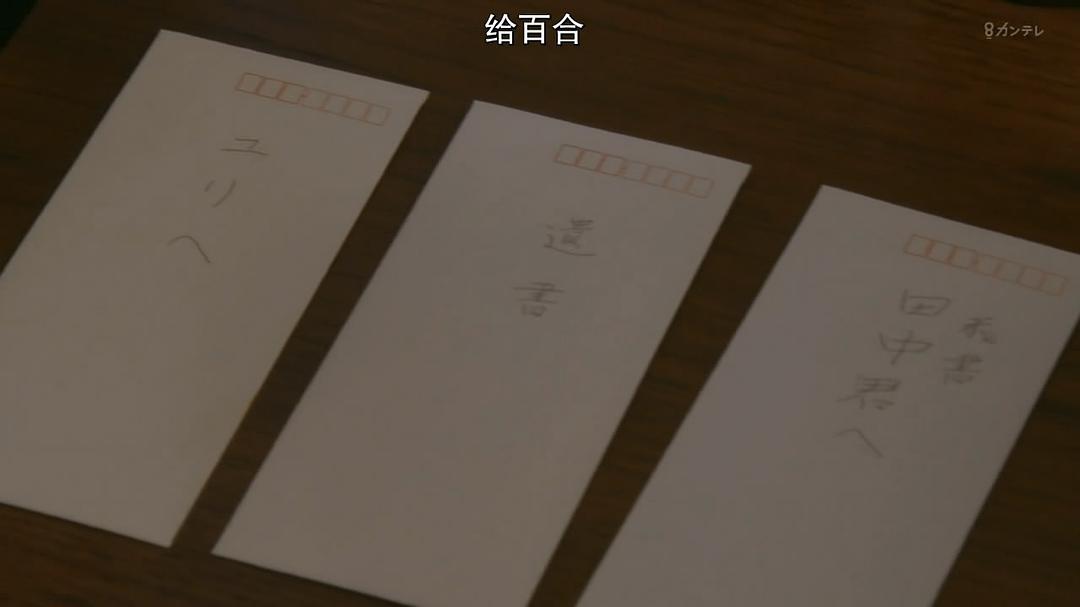 给百合
カンテレ
ユリへ
遺書
秘書
田中君へ